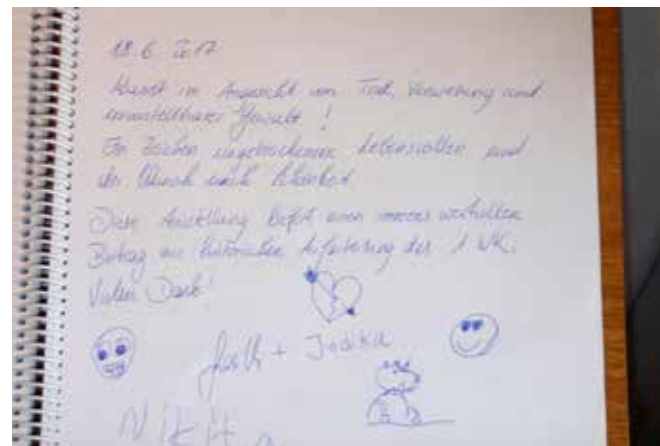 18.6.2017
Kunst im Angesicht von Tod, Verwesung und
unvorstellbarer Gewalt!
Ein Zeichen ungebrochenen Lebenswillen und
der Wunsch nach
Diese Ausstellung liefert einen immens wertvollen
Beitrag zur historischen Aufarbeitung des 1 WK.
Vielen Dank!
+ Indika
Nikita